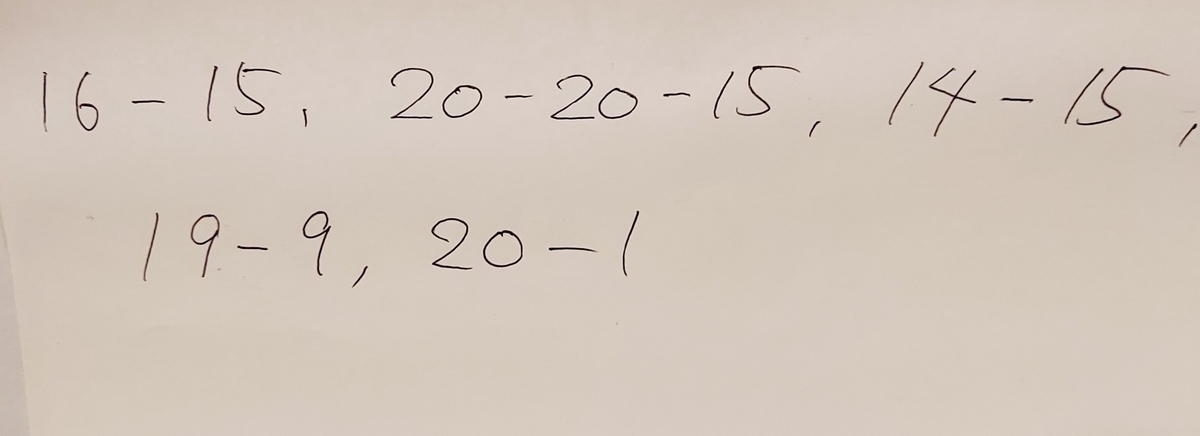 16-15, 20-20-15, 14-15,
19-9, 20-1